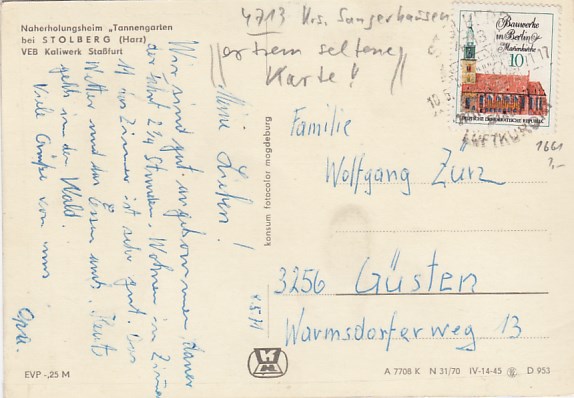 Naherholungsheim „Tannengarten
bei STOLBERG (Harz)
VEB Kaliwerk Staßfurt
4713 Krs. Sangerhausen
extrem seltene
Karte!
Bauwerke
in Berlin
Marienkirche
10
DEUTSCHE DEMOKRATISCHE REPUBLIK
LUFTKURORT
Meine Lieben!
Wir sind gut angekommen, Dauer
der Fahrt 2¼ Stunden. Wohnen in Zimmer
14 das Zimmer ist sehr gut. Das
Wetter und das Essen auch. Heute
gehts in den Wald.
Viele Grüße von uns
Opa.
konsum fotocolor magdeburg
Familie
Wolfgang Zürz
3256 Güsten
Warmsdorferweg 13
EVP -,25 M
A 7708 K N 31/70 IV-14-45 D 953